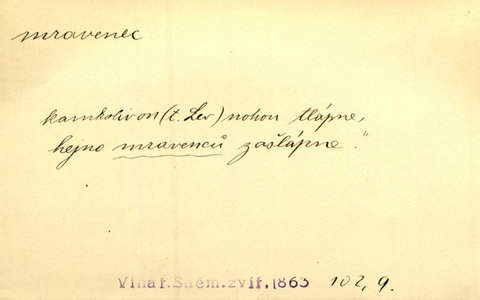 mravenec
kamkoliv on (t. Lev) nohou tlápne,
hejno mravenců zašlápne."
Vinař. Sněm. zvíř. 1863 102, 9.